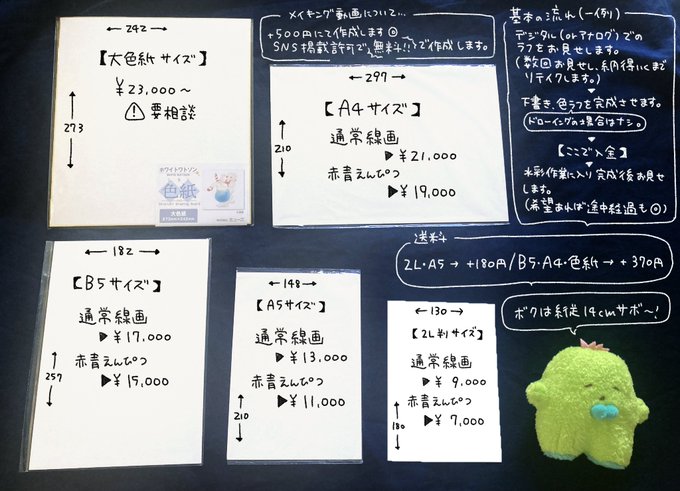 242
【大色紙サイズ】
¥23,000〜
⚠要相談
273
ホワイトワトソン
色紙
大色紙
メイキング動画について…
+500円にて作成します◎
SNS掲載許可で無料!!で作成します。
297
【A4サイズ】
210
通常線画
▶¥21,000
赤青えんぴつ
▶¥19,000
基本の流れ(一例)
デジタル(orアナログ)での
ラフをお見せします。
(数回お見せし、納得いくまで
リテイクします。)
下書き、色ラフを完成させます。
ドローイングの場合はナシ。
【ここで入金】
水彩作業に入り完成後お見せ
します。
(希望あれば途中経過も◎)
送料
2L・A5→+180円/B5・A4・色紙→+370円
ボクは縦14cmサボ〜!
182
【B5サイズ】
通常線画
▶¥17,000
赤青えんぴつ
▶¥15,000
257
148
【A5サイズ】
通常線画
▶¥13,000
赤青えんぴつ
▶¥11,000
210
130
【2L判サイズ】
通常線画
▶¥9,000
赤青えんぴつ
▶¥7,000
180